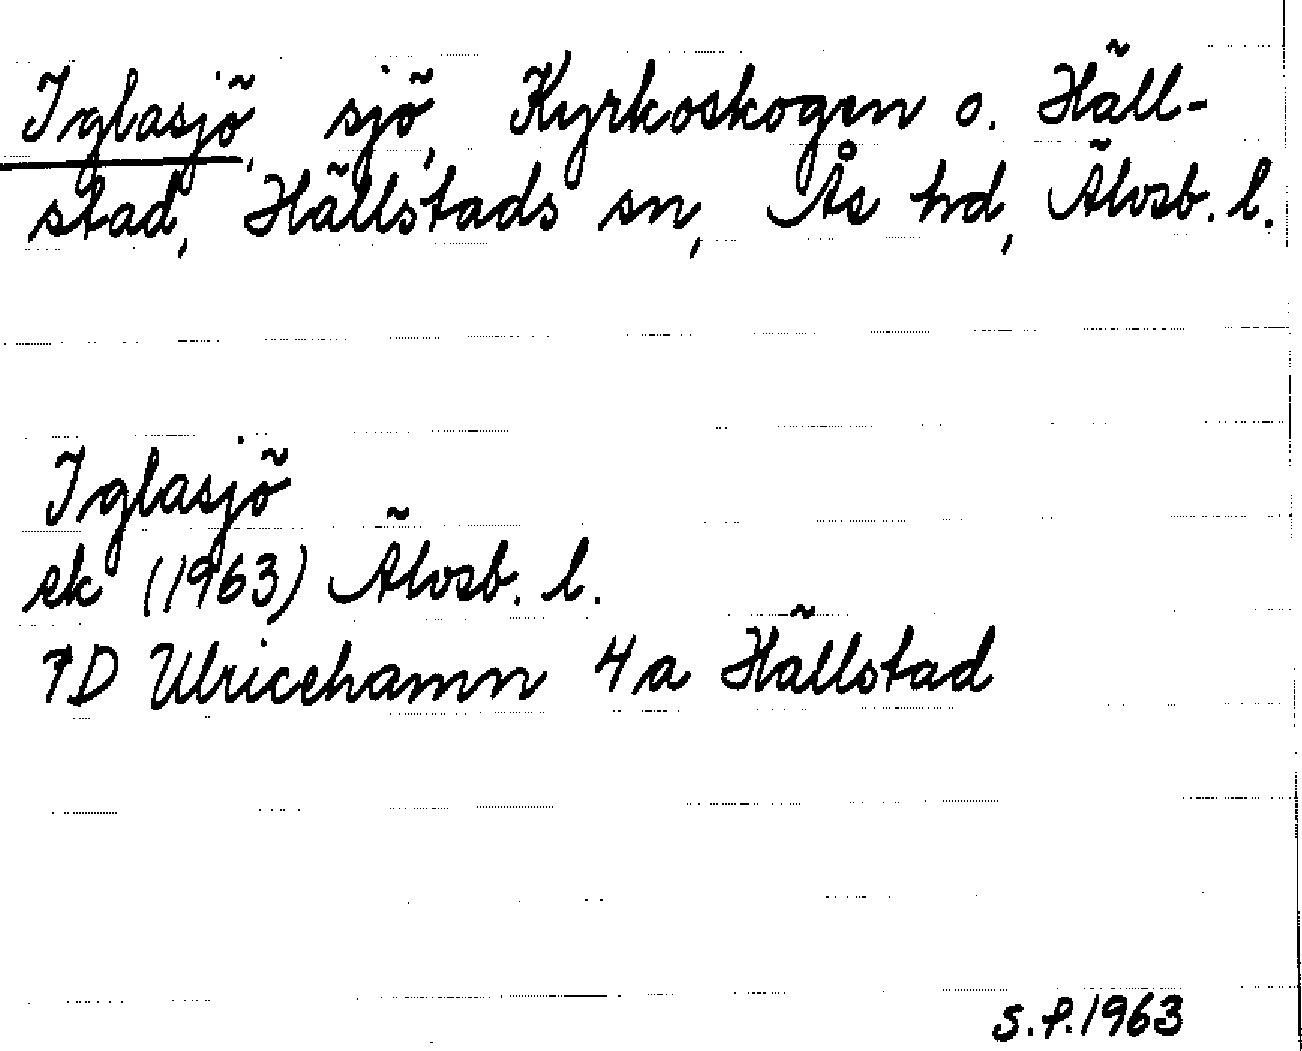 Iglasjö, sjö, Kyrkoskogen o. Häll-
stad, Hällstads sn, Ås hd, Älvsb. l.
Iglasjö
ek (1963) Älvsb. l.
7D Ulricehamn 4a Hällstad
S.P.1963